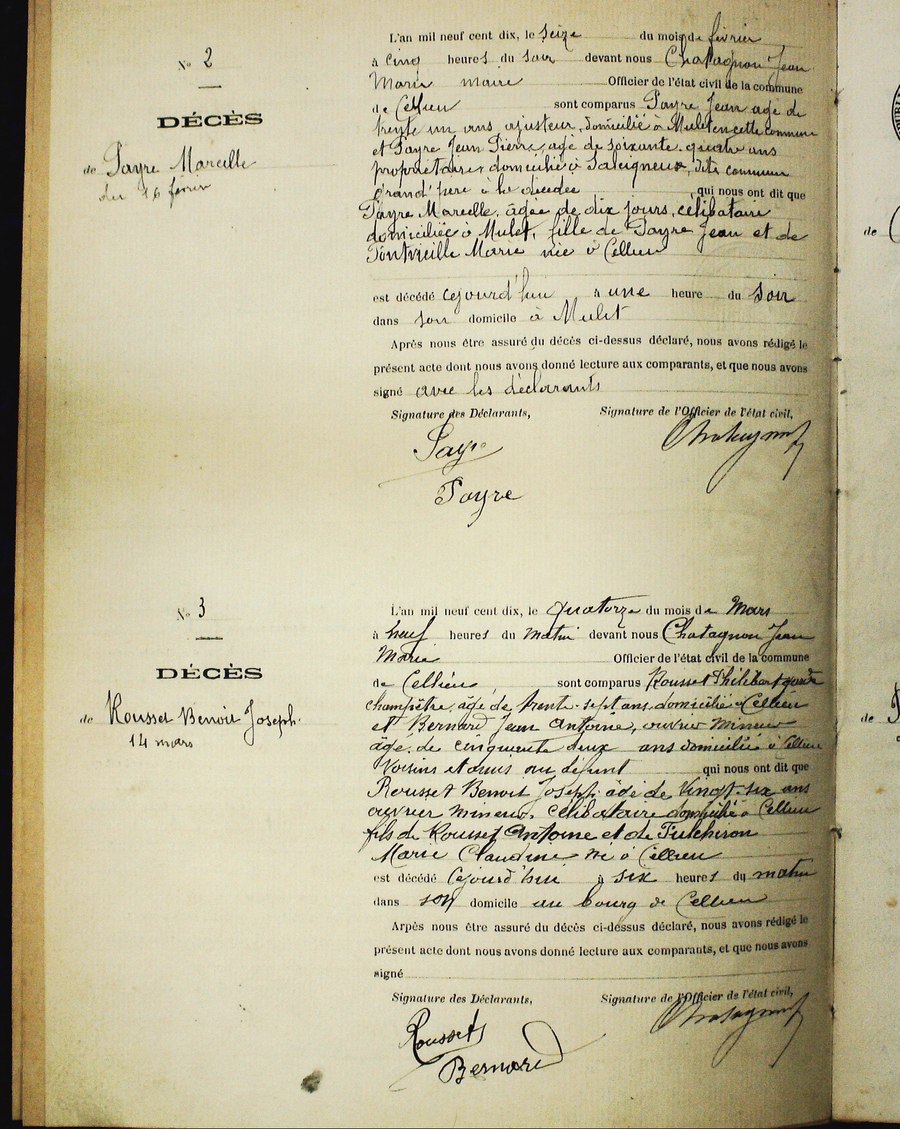 No 2
DÉCÈS
de Payre Marcelle
du 16 févrir
L'an mil neuf cent dix, le seize du mois de février
à cinq heures du soir devant nous Chatagnon Jean
Marie maire Officier de l'état civil de la commune
de Cellieu sont comparus Payre Jean agé de
trente un ans ajusteur, domicilié à Mulet en cette commune
et Payre Jean Pierre, agé de soixante-quatre ans
propriétaire, domicilié à Salcigneux, dite commune
grand'père à la décédée qui nous ont dit que
Payre Marcelle, âgée de dix jours, célibataire
domiciliée à Mulet, fille de Payre Jean et de
Fontvieille Marie née à Cellieu
est décédé cejourd'hui à une heure du soir
dans son domicile à Mulet
Après nous être assuré du décès ci-dessus déclaré, nous avons rédigé le
présent acte dont nous avons donné lecture aux comparants, et que nous avons
signé avec les déclarants
Signature des Déclarants, Signature de l'Officier de l'état civil,
Payre Chatagnon
Payre
No 3
DÉCÈS
de Rousset Benoit Joseph.
14 mars
L'an mil neuf cent dix, le quatorze du mois de Mars
à neuf heures du matin devant nous Chatagnon Jean
Marie Officier de l'état civil de la commune
de Cellieu, sont comparus Rousset Philibert garde
champêtre, âgé de trente-sept ans, domicilié à Cellieu
et Bernard Jean Antoine, ouvrier mineur
âgé de cinquante deux ans domicilié à Cellieu
Voisins et amis au défunt qui nous ont dit que
Rousset Benoit Joseph âgé de vingt-six ans
ouvrier mineur, célibataire domicilié à Cellieu
fils de Rousset Antoine et de Dutcheron
Marie Claudine né à Cellieu
est décédé Cejourd'hui à six heures du matin
dans son domicile au bourg de Cellieu
Arpès nous être assuré du décès ci-dessus déclaré, nous avons rédigé le
présent acte dont nous avons donné lecture aux comparants, et que nous avons
signé
Signature des Déclarants, Signature de l'Officier de l'état civil,
Rousset Chatagnon
Bernard
de
de